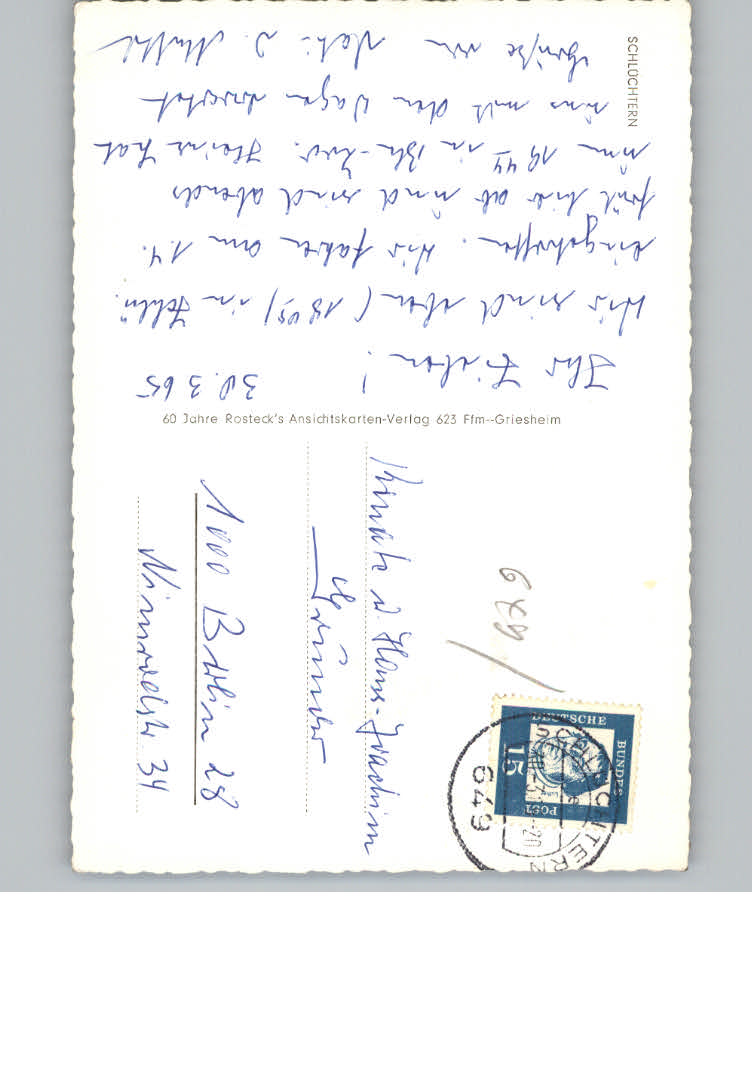 SCHLÜCHTERN
30.3.65
Ihr Lieben!
Wir sind eben (18 05) in Schlü.
eingetroffen. Wir fahren am 1.4.
früh hier ab und sind abends
um 19 44 in Bln-Zoo. Heinz hat
uns mit dem Wagen
Grüße von Vati u. Mutti
60 Jahre Rosteck's Ansichtskarten-Verlag 623 Ffm--Griesheim
Renate u. Hans-Joachim
Gründer
1000 Berlin 28
Nimrodstr 34
679
DEUTSCHE
BUNDES
POST
15
SCHLÜCHTERN
649